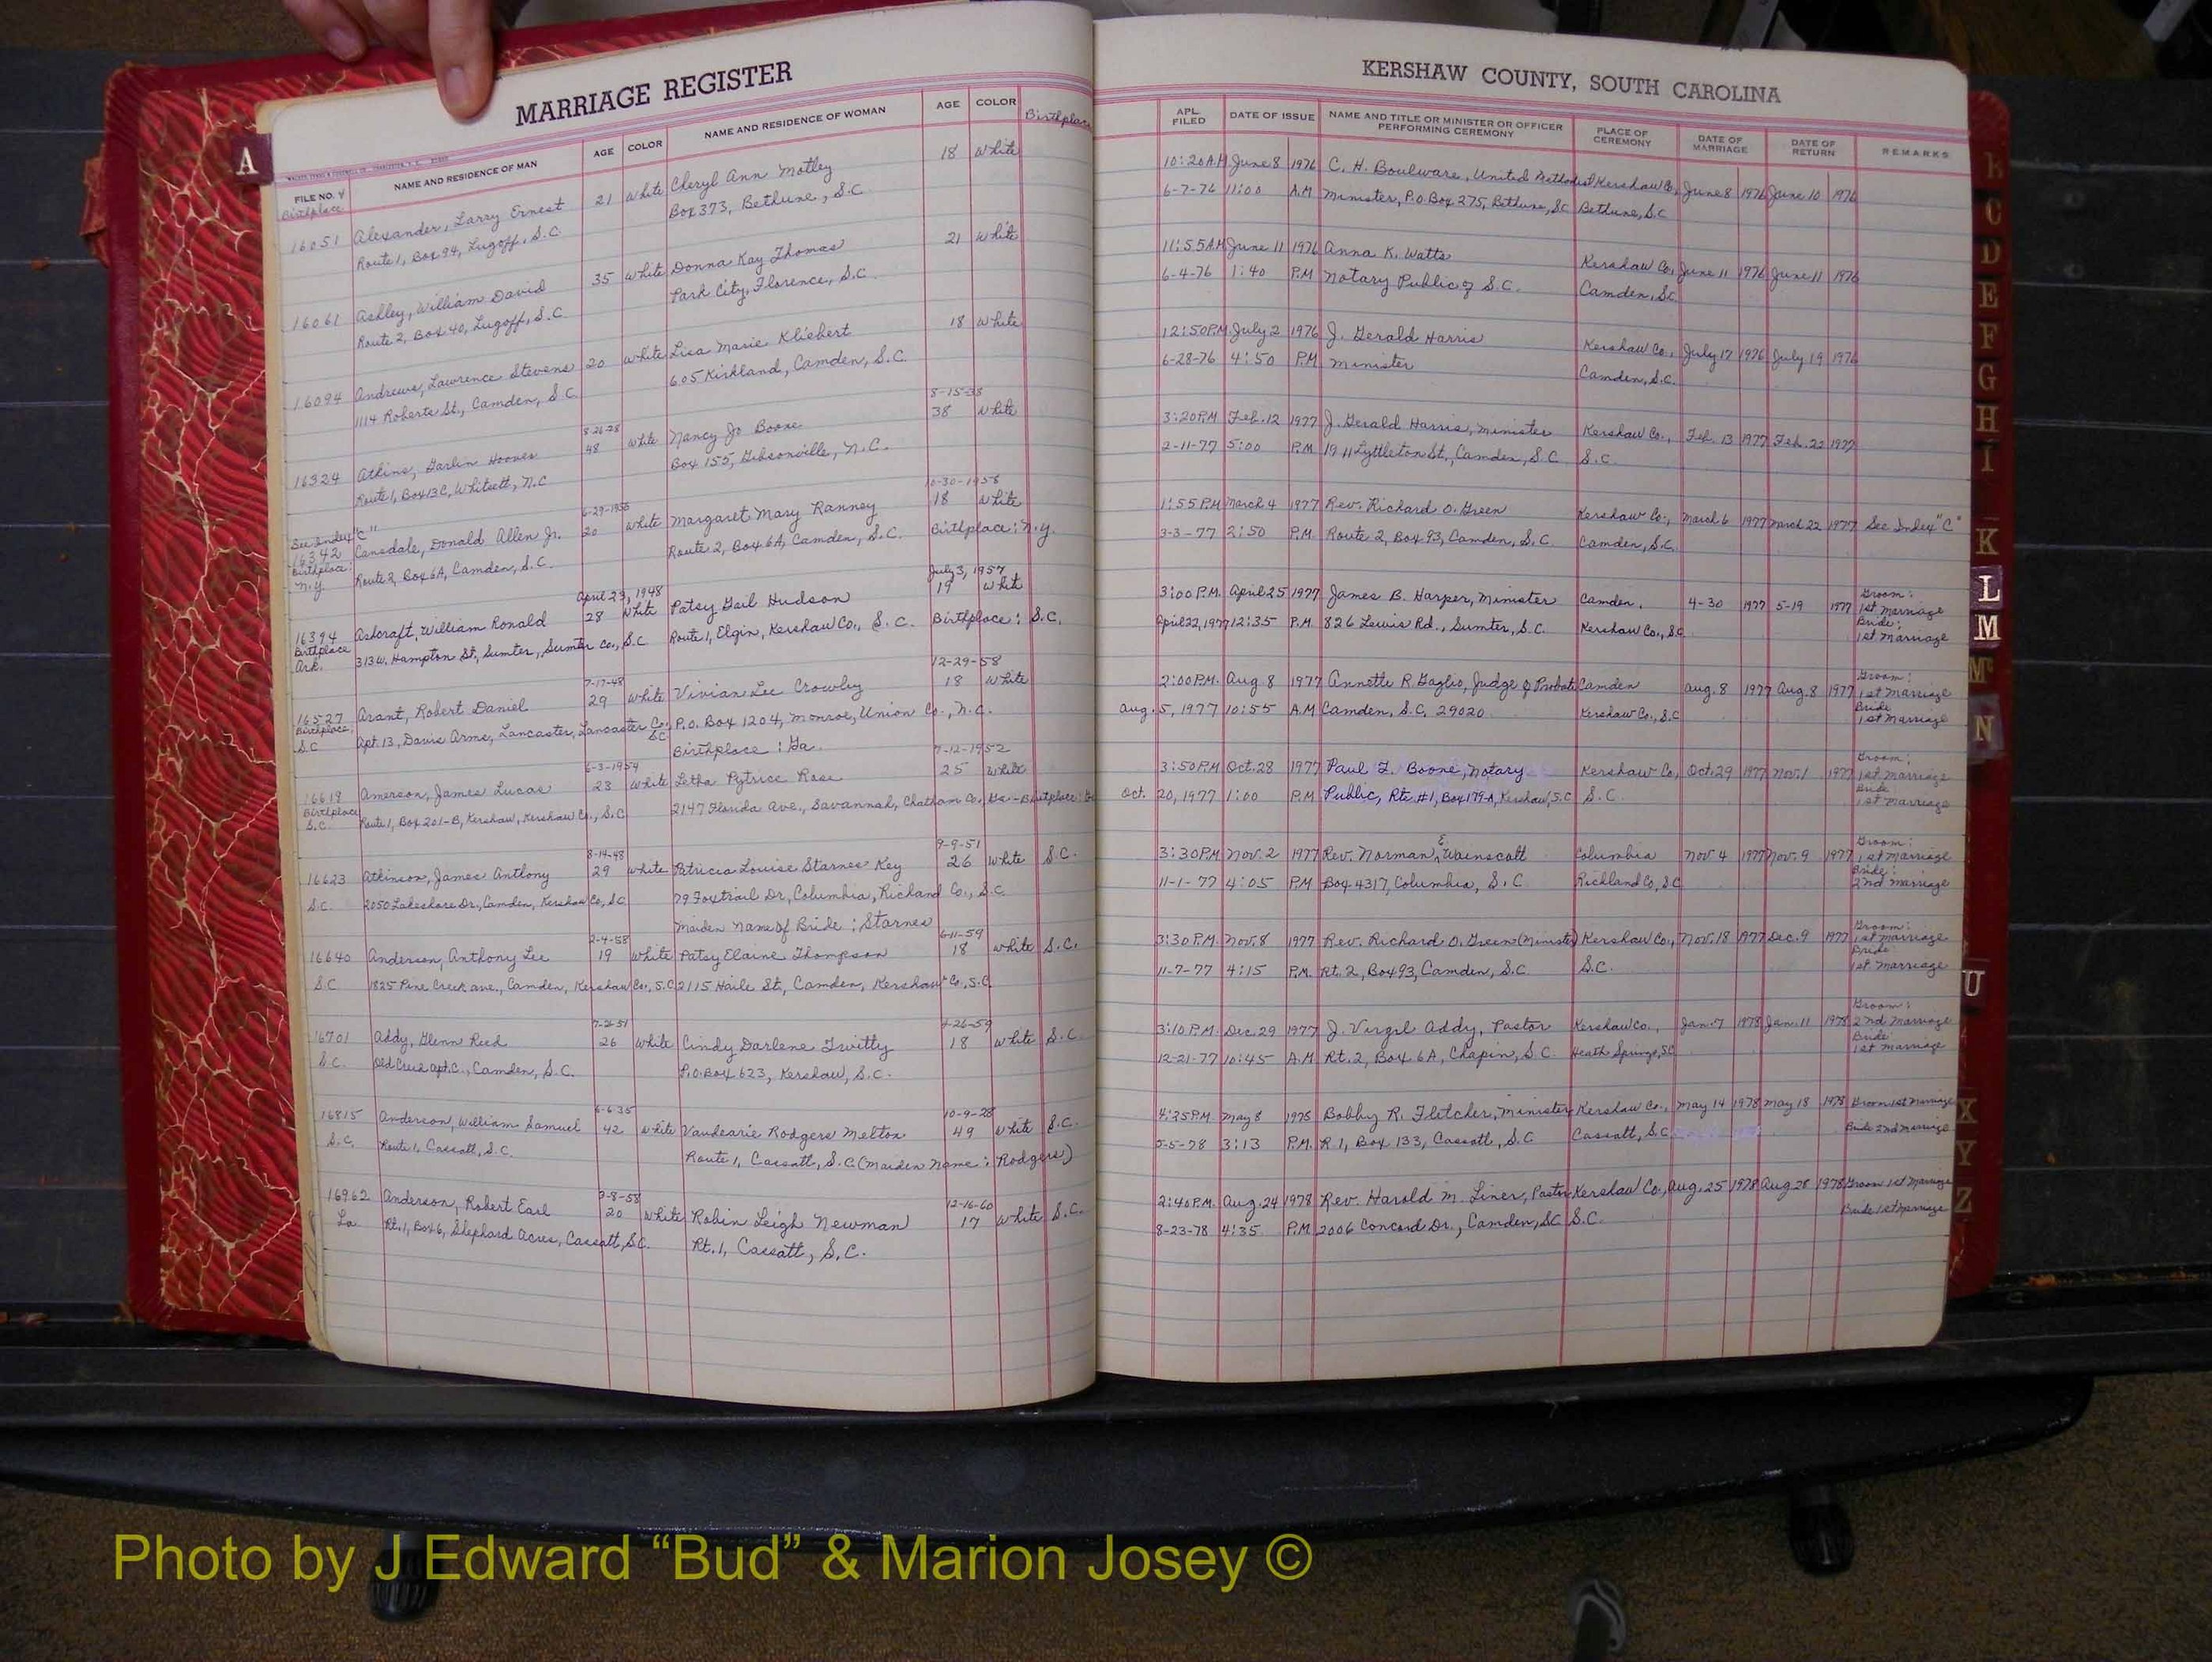 MARRIAGE REGISTER
FILE NO. & Birthplace NAME AND RESIDENCE OF MAN AGE COLOR NAME AND RESIDENCE OF WOMAN AGE COLOR Birthplace
A
16051 Alexander, Larry Ernest 21 White Cheryl Ann Motley 18 White
Route 1, Box 94, Lugoff, S.C. Box 373, Bethune, S.C.
16061 Ashley, William David 35 White Donna Kay Thomas 21 White
Route 2, Box 40, Lugoff, S.C. Park City, Florence, S.C.
16094 Andrews, Lawrence Stevens 20 White Lisa Marie Kliebert 18 White
1114 Roberts St., Camden, S.C. 605 Kirkland, Camden, S.C.
8-26-28 8-15-38
16324 Atkins, Garlin Hoover 48 White Nancy Jo Boone 38 White
Route 1, Box 13C, Whitsett, N.C. Box 155, Gibsonville, N.C.
See Index "C" 6-29-1956 10-30-1958
16342 Cansdale, Donald Allen Jr. 20 White Margaret Mary Ranney 18 White
Birthplace: N.Y. Route 2, Box 6A, Camden, S.C. Route 2, Box 6A, Camden, S.C. Birthplace: N.Y.
April 23, 1948 July 3, 1957
16394 Ashcraft, William Ronald 28 White Patsy Gail Hudson 19 Whit
Birthplace Ark. 313 W. Hampton St, Sumter, Sumter Co., S.C. Route 1, Elgin, Kershaw Co., S.C. Birthplace: S.C.
7-17-48 12-29-58
16527 Arant, Robert Daniel 29 White Vivian Lee Crowley 18 White
Birthplace: S.C. Apt. 13, Davis Arms, Lancaster, Lancaster Co. SC P.O. Box 1204, Monroe, Union Co., N.C.
Birthplace: Ga.
6-3-1954 7-12-1952
16618 Amerson, James Lucas 23 White Letha Pytrice Rose 25 White
Birthplace S.C. Route 1, Box 201-B, Kershaw, Kershaw Co., S.C. 2147 Florida Ave., Savannah, Chatham Co., Ga.-Birthplace:
8-14-48 9-9-51
16623 Atkinson, James Anthony 29 White Patricia Louise Starnes Key 26 White S.C.
S.C. 2050 Lakeshore Dr., Camden, Kershaw Co., S.C. 79 Foxtrail Dr, Columbia, Richland Co., S.C.
Maiden Name of Bride: Starnes
2-4-58 6-11-59
16640 Anderson, Anthony Lee 19 White Patsy Elaine Thompson 18 White S.C.
S.C. 1825 Pine Creek Ave., Camden, Kershaw Co., S.C. 2115 Haile St., Camden, Kershaw Co., S.C.
7-2-51 4-26-59
16701 Addy, Glenn Reed 26 White Cindy Darlene Twitty 18 White S.C.
S.C. Old Creek Apt. C., Camden, S.C. P.O. Box 623, Kershaw, S.C.
6-6-35 10-9-28
16815 Anderson, William Samuel 42 White Vaudearie Rodgers Melton 49 White S.C.
S.C. Route 1, Cassatt, S.C. Route 1, Cassatt, S.C. (Maiden Name: Rodgers)
3-8-58 12-16-60
16962 Anderson, Robert Earl 20 White Robin Leigh Newman 17 White S.C.
La. Rt. 1, Box 6, Shephard Acres, Cassatt, S.C. Rt. 1, Cassatt, S.C.
KERSHAW COUNTY, SOUTH CAROLINA
APL. FILED DATE OF ISSUE NAME AND TITLE OR MINISTER OR OFFICER PERFORMING CEREMONY PLACE OF CEREMONY DATE OF MARRIAGE DATE OF RETURN REMARKS
10:20 A.M. June 8 1976 C. H. Boulware, United Methodist Kershaw Co., June 8 1976 June 10 1976
6-7-76 11:00 A.M Minister, P.O. Box 275, Bethune, SC Bethune, S.C
11:55 A.M. June 11 1976 Anna K. Watts Kershaw Co., June 11 1976 June 11 1976
6-4-76 1:40 P.M Notary Public of S.C. Camden, S.C
12:50 P.M. July 2 1976 J. Gerald Harris Kershaw Co., July 17 1976 July 19 1976
6-28-76 4:50 P.M Minister Camden, S.C.
3:20 P.M Feb. 12 1977 J. Gerald Harris, Minister Kershaw Co., Feb. 13 1977 Feb. 22 1977
2-11-77 5:00 P.M 1911 Lyttleton St., Camden, S.C S.C.
1:55 P.M March 4 1977 Rev. Richard O. Green Kershaw Co., March 6 1977 March 22 1977 See Index "C"
3-3-77 2:50 P.M. Route 2, Box 93, Camden, S.C. Camden, S.C.
3:00 P.M. April 25 1977 James B. Harper, Minister Camden, 4-30 1977 5-19 1977 Groom: 1st Marriage
April 22, 1977 12:35 P.M 826 Lewis Rd., Sumter, S.C. Kershaw Co., S.C Bride: 1st Marriage
2:00 P.M. Aug. 8 1977 Annette R. Gaglio, Judge of Probate Camden Aug. 8 1977 Aug. 8 1977 Groom: 1st Marriage
Aug. 5, 1977 10:55 A.M Camden, S.C. 29020 Kershaw Co., S.C Bride 1st Marriage
3:50 P.M Oct. 28 1977 Paul F. Boone, Notary Kershaw Co, Oct. 29 1977 Nov. 1 1977 Groom: 1st Marriage
Oct. 20, 1977 1:00 P.M Public, Rte. #1, Box 179-A, Kershaw, S.C S.C. Bride 1st Marriage
3:30 P.M Nov. 2 1977 Rev. Norman E Wainscott Columbia Nov. 4 1977 Nov. 9 1977 Groom: 1st Marriage
11-1-77 4:05 P.M Box 4317, Columbia, S.C Richland Co, S.C Bride: 2nd Marriage
3:30 P.M. Nov. 8 1977 Rev. Richard O. Greene (Minister) Kershaw Co., Nov. 18 1977 Dec. 9 1977 Groom: 1st Marriage
11-7-77 4:15 P.M. Rt. 2, Box 93, Camden, S.C. S.C. Bride 1st Marriage
3:10 P.M. Dec. 29 1977 J. Virgil Addy, Pastor Kershaw Co., Jan. 7 1978 Jan. 11 1978 Groom: 2nd Marriage
12-21-77 10:45 A.M Rt. 2, Box 6A, Chapin, S.C. Heath Springs, SC Bride 1st Marriage
4:25 P.M. May 8 1978 Bobby R. Fletcher, Minister Kershaw Co., May 14 1978 May 18 1978 Groom 1st Marriage
5-5-78 3:13 P.M. R 1, Box 133, Cassatt, S.C Cassatt, S.C Bride 2nd Marriage
2:40 P.M. Aug. 24 1978 Rev. Harold M. Liner, Pastor Kershaw Co., Aug. 25 1978 Aug 28 1978 Groom 1st Marriage
8-23-78 4:35 P.M 2006 Concord Dr., Camden, S.C S.C. Bride 1st Marriage
C
D
E
F
G
H
I
K
L
M
Mc
N
U
X
Y
Z
Photo by J Edward “Bud” & Marion Josey ©